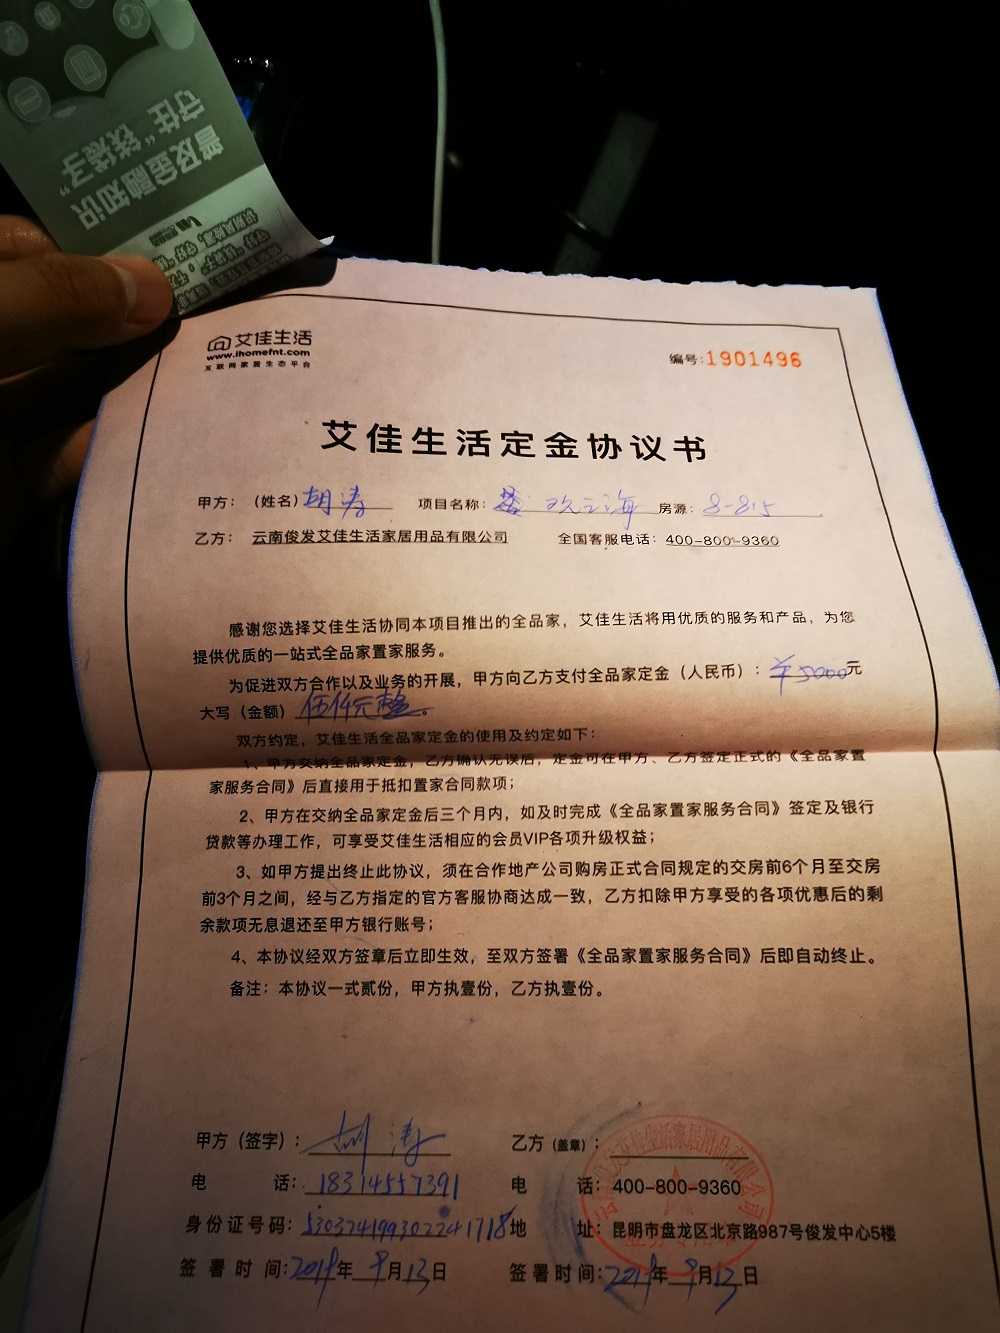 普及金融知识
守住“钱袋子”
艾佳生活
www.ihomefnt.com
互联网家居生态平台
编号:1901496
艾佳生活定金协议书
甲方：（姓名）胡涛 项目名称： 欢云海 房源：8-815
乙方： 云南俊发艾佳生活家居用品有限公司 全国客服电话：400-800-9360
感谢您选择艾佳生活协同本项目推出的全品家，艾佳生活将用优质的服务和产品，为您
提供优质的一站式全品家置家服务。
为促进双方合作以及业务的开展，甲方向乙方支付全品家定金（人民币）：￥5000元
大写（金额）伍仟元整。
双方约定，艾佳生活全品家定金的使用及约定如下：
1、甲方交纳全品家定金，乙方确认无误后，定金可在甲方、乙方签定正式的《全品家置
家服务合同》后直接用于抵扣置家合同款项；
2、甲方在交纳全品家定金后三个月内，如及时完成《全品家置家服务合同》签定及银行
贷款等办理工作，可享受艾佳生活相应的会员VIP各项升级权益；
3、如甲方提出终止此协议，须在合作地产公司购房正式合同规定的交房前6个月至交房
前3个月之间，经与乙方指定的官方客服协商达成一致，乙方扣除甲方享受的各项优惠后的剩
余款项无息退还至甲方银行账号；
4、本协议经双方签章后立即生效，至双方签署《全品家置家服务合同》后即自动终止。
备注：本协议一式贰份，甲方执壹份，乙方执壹份。
甲方（签字）：胡涛 乙方（盖章）：
电 话：18314557391 电 话：400-800-9360
身份证号码：530324199302241718 地 址：昆明市盘龙区北京路987号俊发中心5楼
签署时间:2019年9月13日 签署时间:2019年9月13日